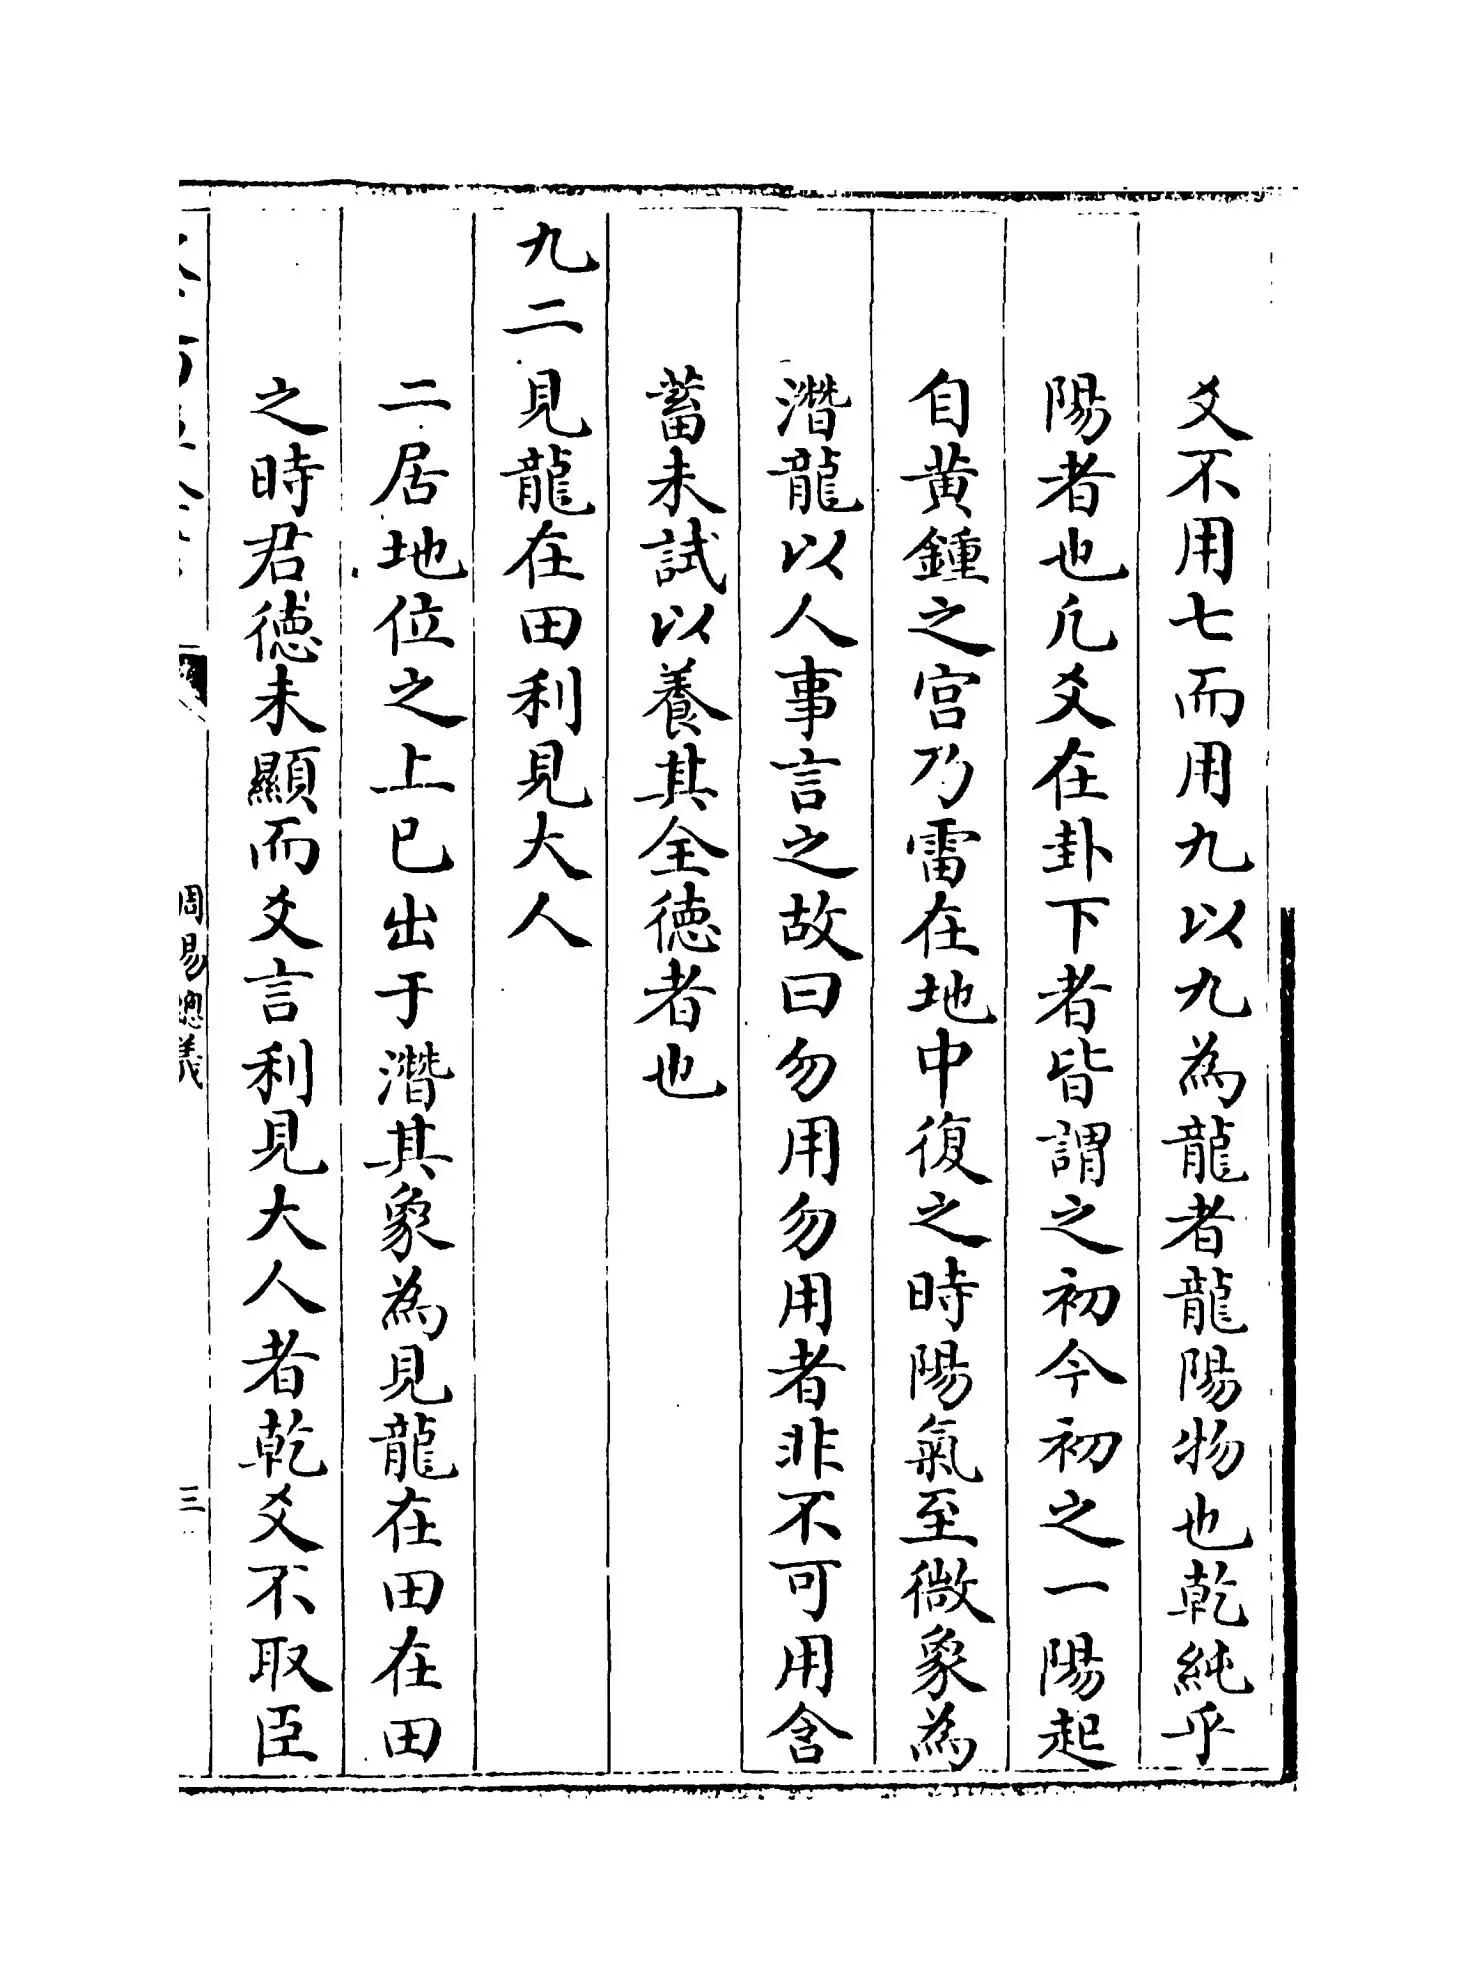 爻不用七而用九以九為龍者龍陽物也乾純乎
陽者也凢爻在卦下者皆謂之初今初之一陽起
自黄鍾之宫乃雷在地中復之時陽氣至微象為
潛龍以人事言之故曰勿用勿用者非不可用含
蓄未試以養其全徳者也
九二見龍在田利見大人
二居地位之上已出于潛其象為見龍在田在田
之時君徳未顯而爻言利見大人者乾爻不取臣
周易總義
三